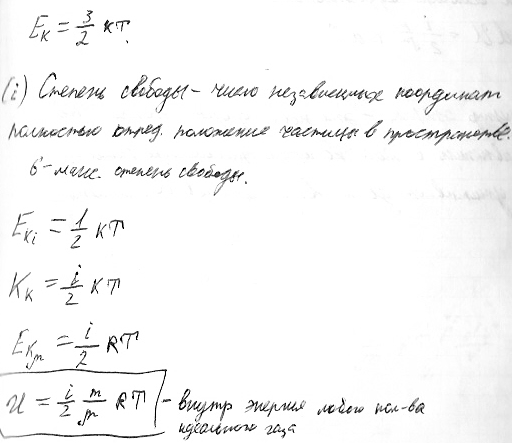 Eк = 3/2 кТ.
(i) Степень свободы – число независимых координат
полностью опред. положение частицы в пространстве.
6 – макс. степень свободы.
Eкi = 1/2 кТ
Kк = i/2 кТ
Eкm = i/2 RT
U = i/2 m/μ RT – внутр энергия любого кол-ва
идеального газа